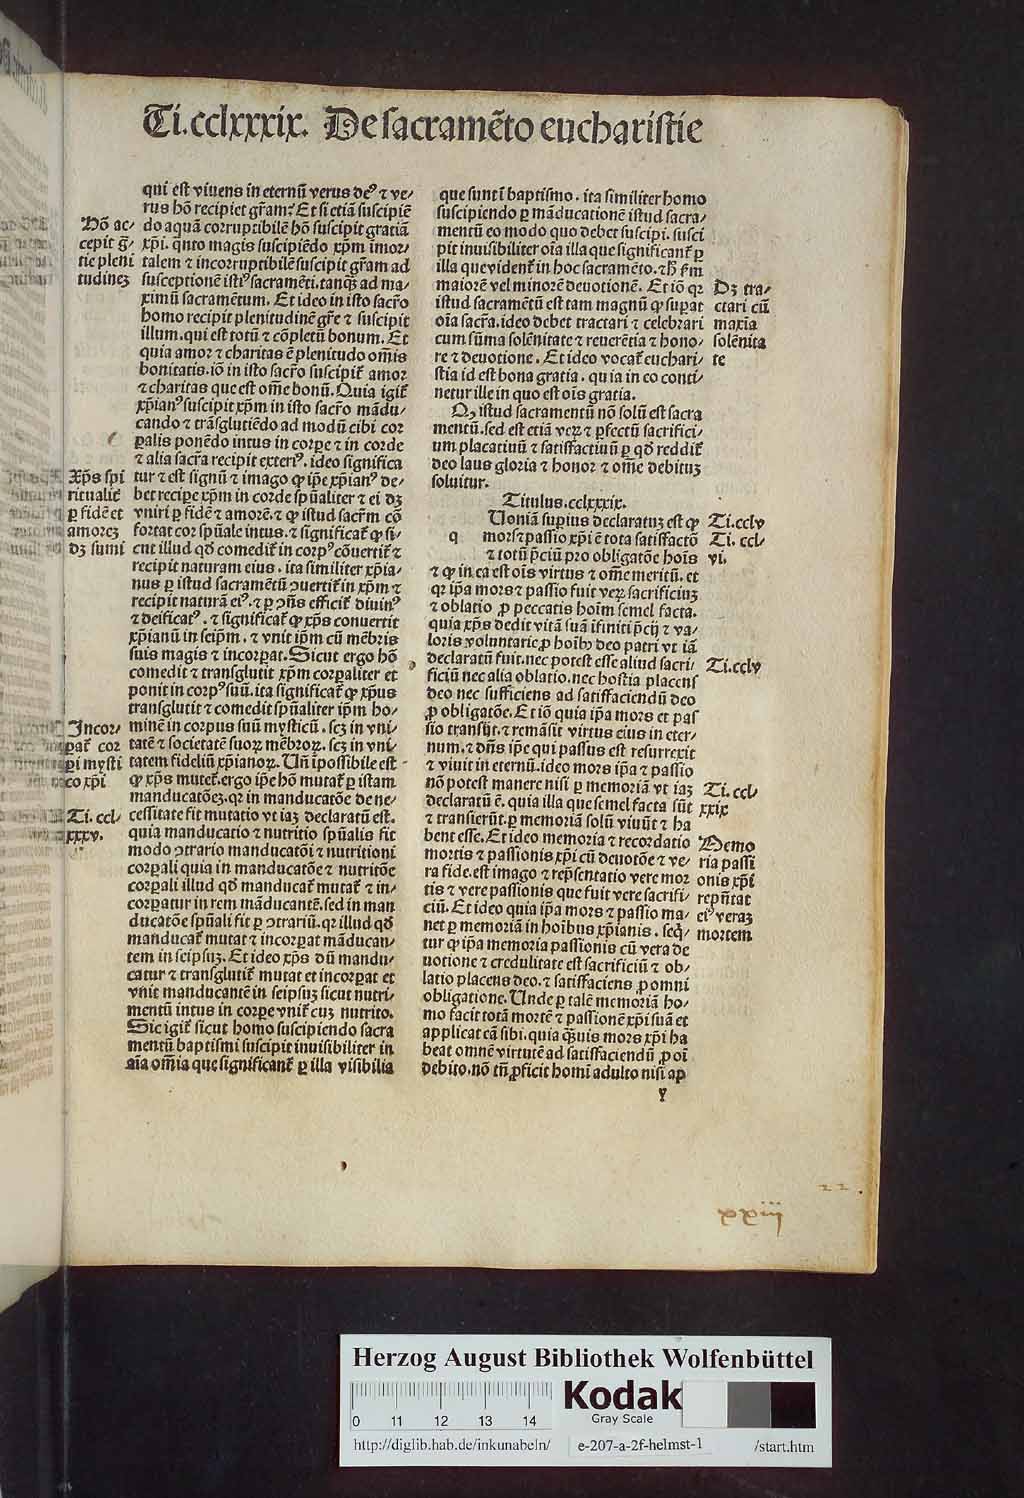 Ti.cclxxxix. De sacramēto eucharistie
qui est viuens in eternū verus deꝰ ⁊ ve/
rus hō recipiet gr̄am? Et si etiā suscipiē
do aquā corruptibilē hō suscipit gratiā
xp̄i. q̄nto magis suscipiēdo xp̄m imor/
talem ⁊ incorruptibilē suscipit gr̄am ad
susceptionē istiꝰ sacramēti. tanq̄ȝ ad ma/
ximū sacramētum. Et ideo in isto sacr̄o
homo recipit plenitudinē gr̄e ⁊ suscipit
illum. qui est totū ⁊ cōpletū bonum. Et
quia amor ⁊ charitas ē plenitudo om̄is
bonitatis. iō in isto sacr̄o suscipit̄ amor
⁊ charitas que est om̄e bonū. Quia igit̄
xp̄ianꝰ suscipit xp̄m in isto sacr̄o mādu/
cando ⁊ trāsglutiēdo ad modū cibi cor
ꝑalis ponēdo intus in corꝑe ⁊ in corde
⁊ alia sacr̄a recipit exteriꝰ. ideo significa
tur ⁊ est signū ⁊ imago ꝙ ip̄e xp̄ianꝰ de/
bet reciꝑe xp̄m in corde sp̄ualiter ⁊ ei dȝ
vniri ꝑ fidē ⁊ amorē. ⁊ ꝙ istud sacr̄m cō
fortat cor sp̄uale intus. ⁊ significat̄ ꝙ si/
cut illud qd̄ comedit̄ in corpꝰ cōuertit̄ ⁊
recipit naturam eius. ita similiter xp̄ia/
nus ꝑ istud sacramētū ꝯuertit̄ in xp̄m ⁊
recipit naturā eiꝰ. ⁊ ꝑ ꝯn̄s efficit̄ diuinꝰ
⁊ deificatꝰ. ⁊ significat̄ ꝙ xp̄s conuertit
xp̄ianū in seip̄m. ⁊ vnit ip̄m cū mēbris
suis magis ⁊ incorꝑat. Sicut ergo hō
comedit ⁊ transglutit xp̄m corꝑaliter et
ponit in corpꝰ suū. ita significat̄ ꝙ xp̄us
transglutit ⁊ comedit sp̄ualiter ip̄m ho/
minē in corpus suū mysticū. scȝ in vni
tatē ⁊ societatē suoꝝ mēbroꝝ. scȝ in vni/
tatem fideliū xp̄ianoꝝ. Un̄ īpossibile est
ꝙ xp̄s mutet̄. ergo ip̄e hō mutat̄ ꝑ istam
manducatōeȝ. qr in manducatōe de ne/
cessitate fit mutatio vt iaȝ declaratū est.
quia manducatio ⁊ nutritio sp̄ualis fit
modo ꝯtrario manducatōi ⁊ nutritioni
corꝑali quia in manducatōe ⁊ nutritōe
corꝑali illud qd̄ manducat̄ mutat̄ ⁊ in/
corꝑatur in rem māducantē. sed in man
ducatōe sp̄uali fit ꝑ ꝯtrariū. qr illud qd̄
manducat̄ mutat ⁊ incorꝑat māducan/
tem in seipsuȝ. Et ideo xp̄s dū mandu/
catur ⁊ transglutit̄ mutat et incorꝑat et
vnit manducantē in seipsuȝ sicut nutri/
mentū intus in corꝑe vnit̄ cuȝ nutrito.
Sic igit̄ sicut homo suscipiendo sacra
mentū baptismi suscipit inuisibiliter in
aīa om̄ia que significant̄ ꝑ illa visibilia
Hō ac/
cepit ḡ/
tie pleni
tudineȝ
Xp̄s spi
ritualit̄
ꝑ fidē et
amoreȝ
dȝ sumi
Incor/
ꝑat̄ cor
ꝑi mysti
co xp̄i
Ti.ccl/
xxxv.
que sunt ī baptismo. ita similiter homo
suscipiendo ꝑ māducationē istud sacra/
mentū eo modo quo debet suscipi. susci
pit inuisibiliter oīa illa que significant̄ ꝑ
illa que vident̄ in hoc sacramēto. ⁊ h̄ fm̄
maiorē vel minorē deuotionē. Et iō qr
istud sacramētū est tam magnū ꝙ suꝑat
oīa sacr̄a. ideo debet tractari ⁊ celebrari
cum sūma solēnitate ⁊ reuerētia ⁊ hono/
re ⁊ deuotione. Et ideo vocat̄ euchari/
stia id est bona gratia. quia in eo conti/
netur ille in quo est oīs gratia.
Qȝ istud sacramentū nō solū est sacra
mentū. sed est etiā veꝝ ⁊ ꝑfectū sacrifici/
um placatiuū ⁊ satisfactiuū ꝑ qd̄ reddit̄
deo laus gloria ⁊ honor ⁊ om̄e debituȝ
soluitur.
Titulus.cclxxxix.
q Uoniā suꝑius declaratuȝ est ꝙ
mors ⁊ passio xp̄i ē tota satisfactō
⁊ totū p̄ciū pro obligatōe hoīs
⁊ ꝙ in ea est oīs virtus ⁊ om̄e meritū. et
qr ip̄a mors ⁊ passio fuit veꝝ sacrificiuȝ
⁊ oblatio ꝓ peccatis hoīm semel facta.
quia xp̄s dedit vitā suā īfiniti p̄cij ⁊ va/
loris voluntarie ꝓ hoībꝰ deo patri vt iā
declaratū fuit. nec potest esse aliud sacri/
ficiū nec alia oblatio. nec hostia placens
deo nec sufficiens ad satisfaciendū deo
ꝓ obligatōe. Et iō quia ip̄a mors et pas
sio transijt. ⁊ remāsit virtus eius in eter/
num. ⁊ dn̄s ip̄e qui passus est resurrexit
⁊ viuit in eternū. ideo mors ip̄a ⁊ passio
nō potest manere nisi ꝑ memoriā vt iaȝ
declaratū ē. quia illa que semel facta sūt
⁊ transierūt. ꝑ memoriā solū viuūt ⁊ ha
bent esse. Et ideo memoria ⁊ recordatio
mortis ⁊ passionis xp̄i cū deuotōe ⁊ ve/
ra fide. est imago ⁊ rep̄sentatio vere mor
tis ⁊ vere passionis que fuit vere sacrifi/
ciū. Et ideo quia ip̄a mors ⁊ passio ma/
net ꝑ memoriā in hoībus xp̄ianis. seq̄/
tur ꝙ ip̄a memoria passionis cū vera de
uotione ⁊ credulitate est sacrificiū ⁊ ob/
latio placens deo. ⁊ satisfaciens ꝓ omni
obligatione. Unde ꝑ talē memoriā ho/
mo facit totā mortē ⁊ passionē xp̄i suā et
applicat eā sibi. quia q̄ȝuis mors xp̄i ha
beat omnē virtutē ad satisfaciendū ꝓ oī
debito. nō tn̄ ꝓficit homī adulto nisi ap
y
Dȝ tra/
ctari cū
maxīa
solēnita
te
Ti.cclv
Ti.ccl/
vi.
Ti.cclv
Ti.ccl/
xxix
Memo
ria passi
onis xp̄i
rep̄n̄tat
eiꝰ veraȝ
mortem
22.
xxiij
Herzog August Bibliothek Wolfenbüttel
0 11 12 13 14
Kodak
Gray Scale
http://diglib.hab.de/inkunabeln/ e-207-a-2f-helmst-1 /start.htm